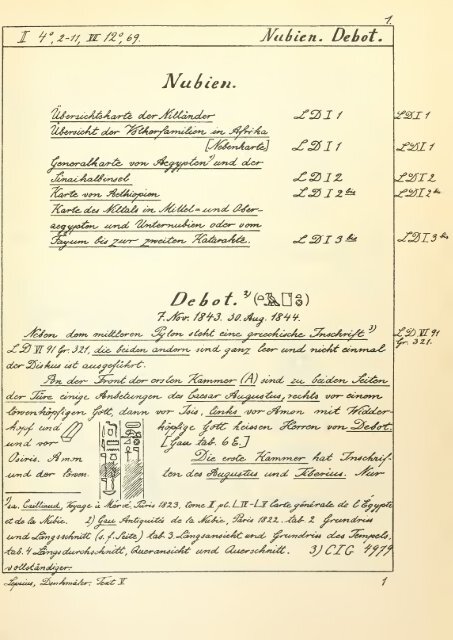 1.
II 4°, 2-11, VII 12°, 69. Nubien. Debot.
Nubien.
Übersichtskarte der Nilländer LD I 1 LD I 1
Übersicht der Völkerfamilien in Afrika
[Nebenkarte] LD I 1 LD I 1
Generalkarte von Aegypten¹⁾ und der
Sinaihalbinsel LD I 2 LD I 2
Karte von Aethiopien LD I 2 bis LD I 2 bis
Karte des Niltals in Mittel- und Ober-
aegypten und Unternubien oder vom
Fayum bis zur zweiten Katarakte. LD I 3 bis LD I 3 bis
Debot.²⁾
7. Nov. 1843. 30. Aug. 1844.
Neben dem mittleren Pylon steht eine griechische Inschrift³⁾ LD VI 91
LD VI 91 Gr. 321, die beiden andern sind ganz leer und nicht einmal Gr. 321.
der Diskus ist ausgeführt.
An der Front der ersten Kammer (A) sind zu beiden Seiten
der Türe einige Anbetungen des Caesar Augustus, rechts vor einem
löwenköpfigen Gott, dann vor Isis, links vor Amon mit Widder-
kopf und köpfige Gott heissen Herren von Debot.
und vor [Gau tab. 6 E.]
Osiris. Amm Die erste Kammer hat Inschrif-
und der löwen ten des Augustus und Tiberius. Nur
¹⁾ cu. Cailliaud, Voyage à Méroé, Paris 1823, tome II, pl. LII-LV Carte générale de l'Egypte
et de la Nubie. 2) Gau Antiquités de la Nubie, Paris 1822. tab. 2 Grundriss
und Längsschnitt (s. f. Seite) tab. 3 Längsansicht und Grundriss des Tempels,
tab. 4 Längsdurchschnitt, Queransicht und Querschnitt. 3) CIG 4979
vollständiger.
Lepsius, Denkmäler. Text V 1